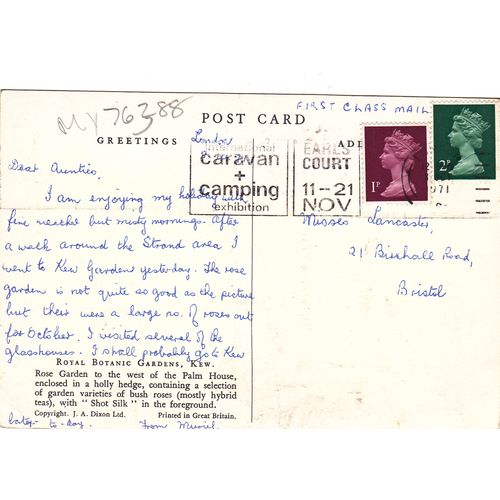 FIRST CLASS MAIL
MY 76388
POST CARD
GREETINGS
ADE
London
international
caravan
+
camping
exhibition
EARLS
COURT
11-21
NOV
1P
2P
1971
Dear Aunties,
I am enjoying my holiday with
fine weather but misty mornings. After
a walk around the Strand area I
went to Kew Garden yesterday. The rose
garden is not quite so good as the picture
but their were a large no. of roses out
for October. I visited several of the
glasshouses. I shall probably go to Kew
Misses Lancaster,
21 Road,
Bristol
ROYAL BOTANIC GARDENS, KEW.
Rose Garden to the west of the Palm House,
enclosed in a holly hedge, containing a selection
of garden varieties of bush roses (mostly hybrid
teas), with "Shot Silk" in the foreground.
Copyright. J. A. Dixon Ltd. Printed in Great Britain.
later to-day. From Muriel.